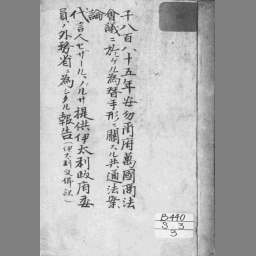 千八百八十五年安勿爾府萬國商法
會議ニ於ケル為替手形ニ關スル共通法案
論
代言人セザール、バルサ提供伊太利政府委
員ノ外務省ニ為シタル報告(伊太利文併訳)
B440
S 3
3